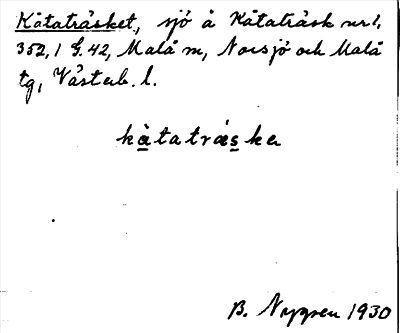 Kåtaträsket, sjö å Kåtaträsk nr 1,
352,1 G. 42, Malå m, Norsjö och Malå
tg, Västerb. l.
kå̀taträ́ska
B. Nygren 1930